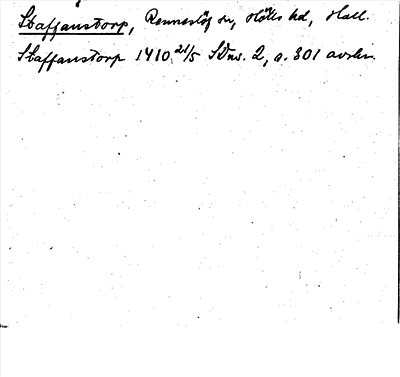 Staffanstorp, Renneslöv sn, Höks hd, Hall.
Staffanstorp 1410 21/5 SDns. 2, s. 301 avskr.